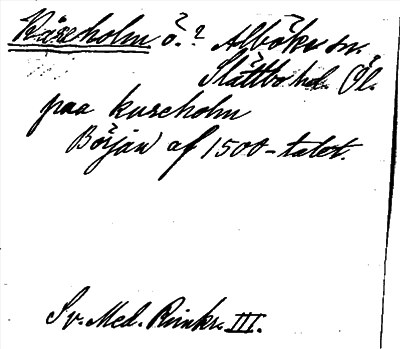 Kåreholm ö.? Alböke sn.
Slättbo hd. Öl.
paa kareholm
Början af 1500-talet.
Sv. Med. Rimkr. III.